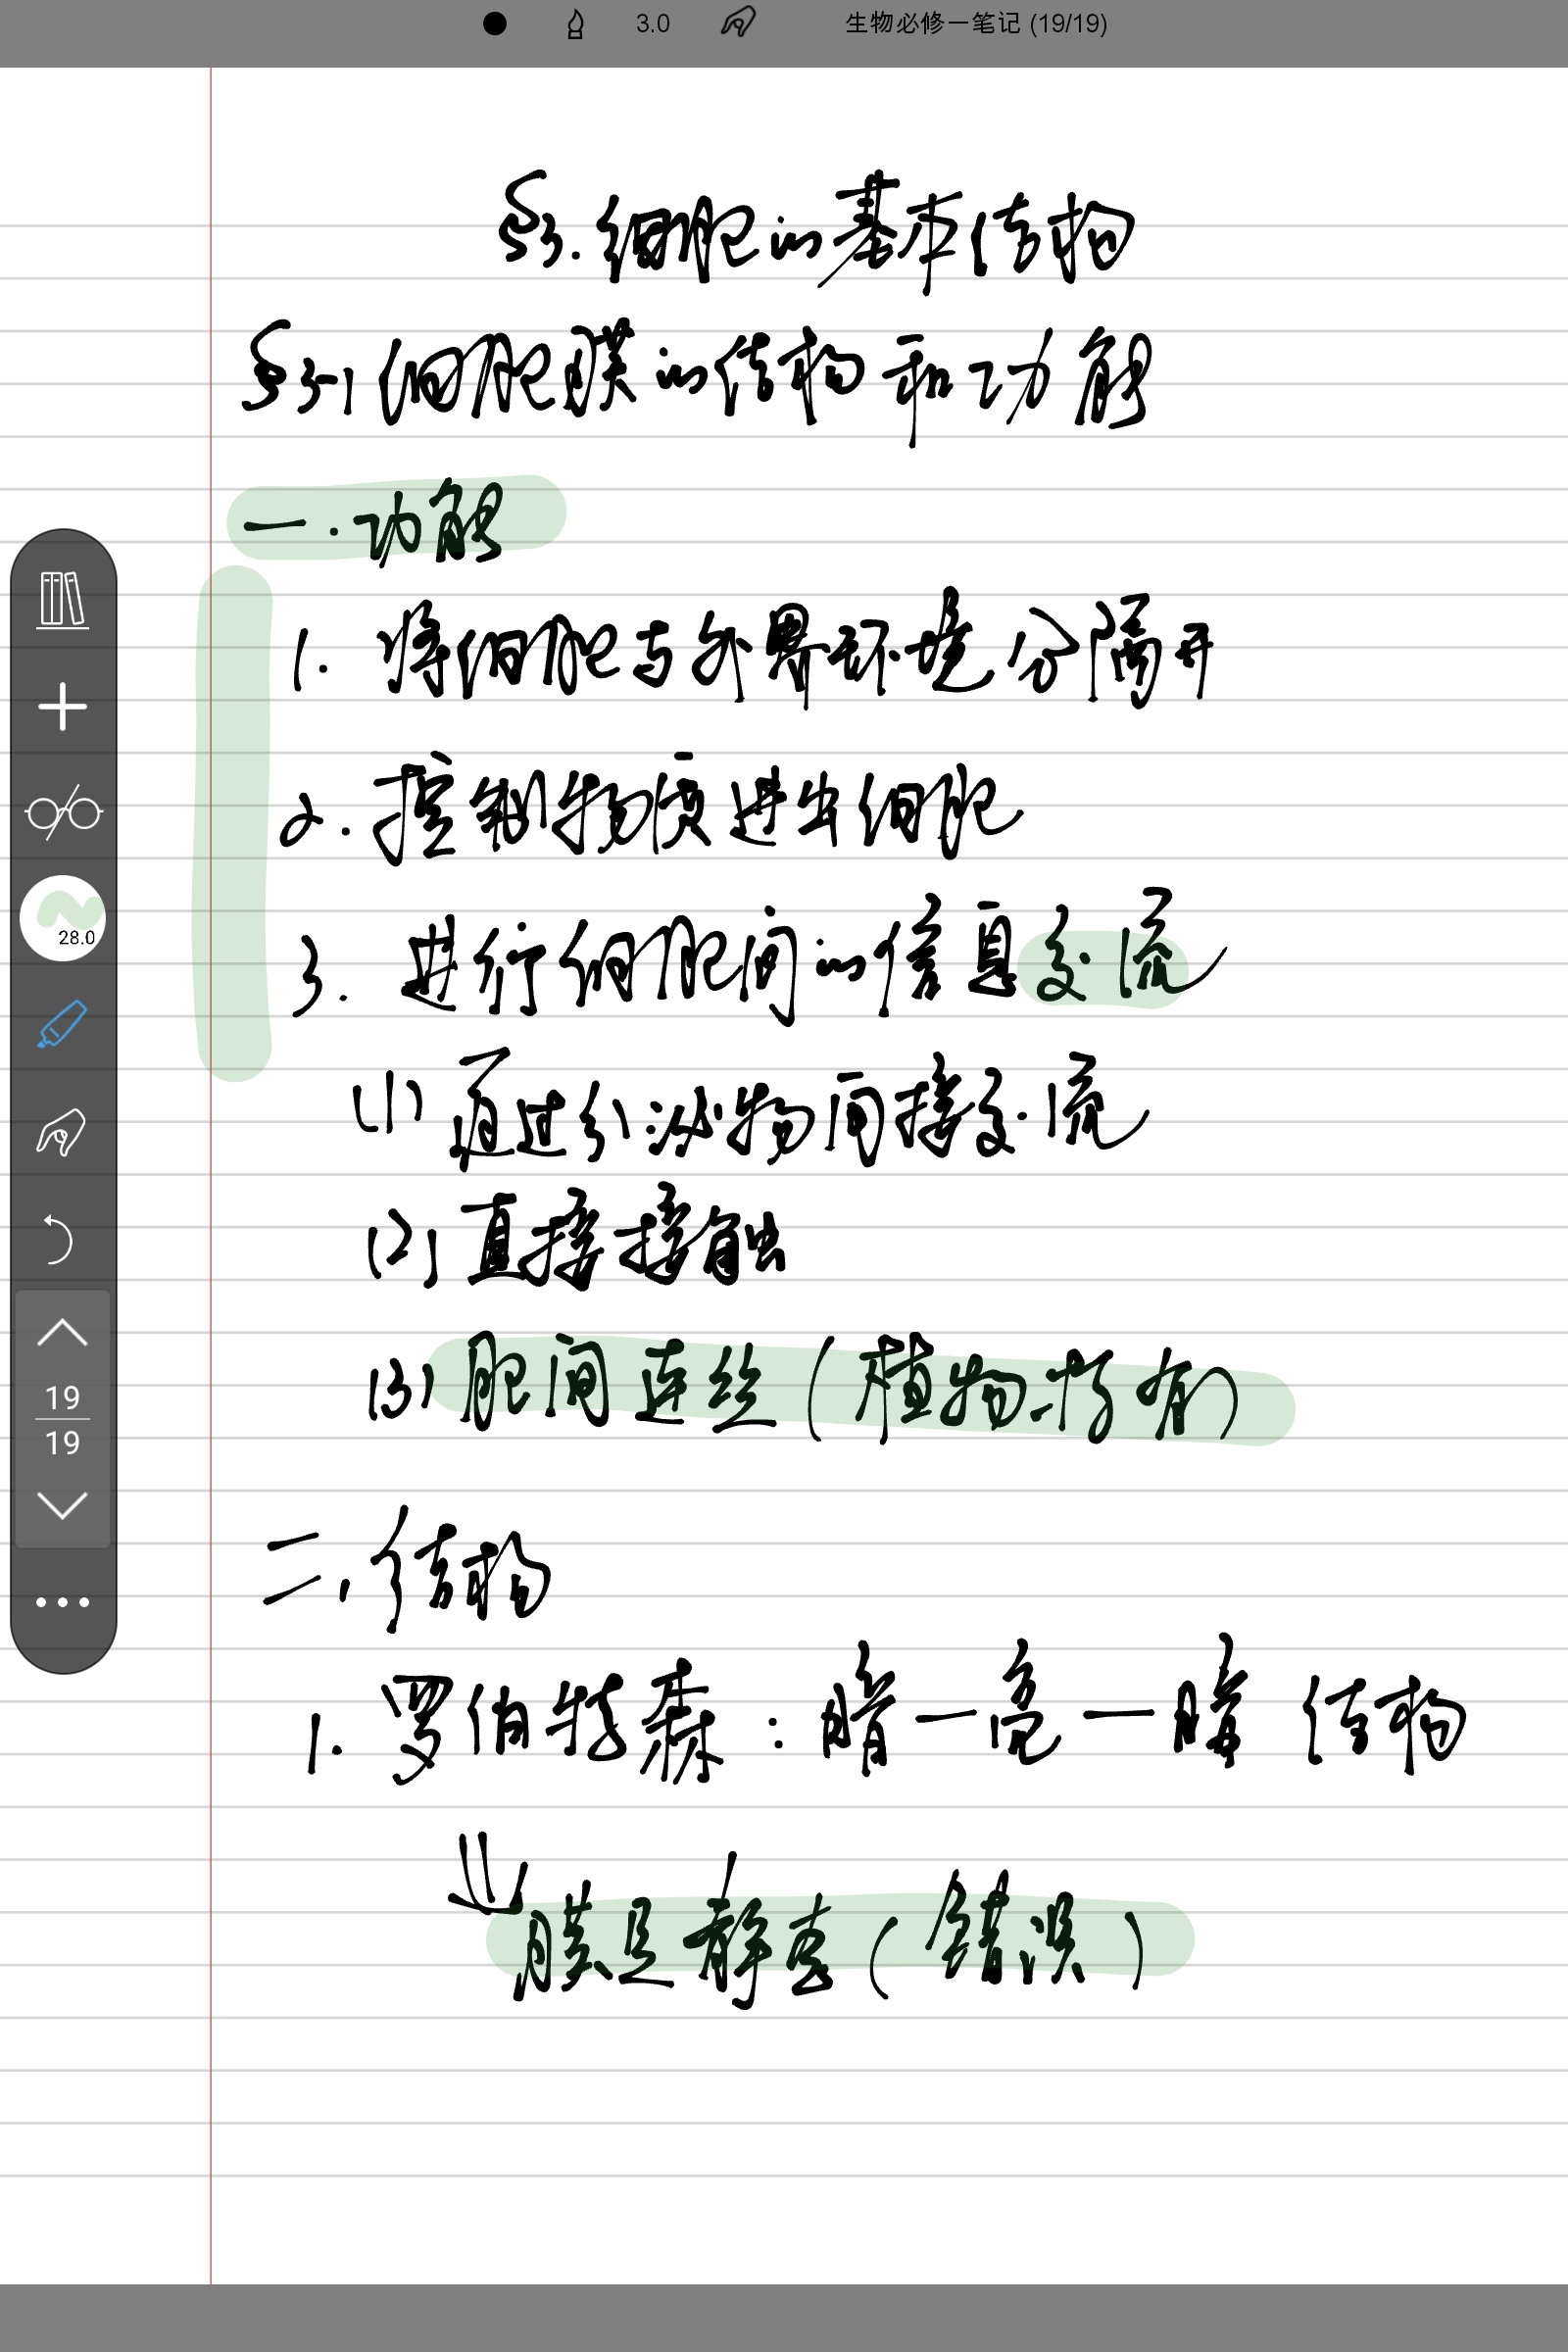 3.0 生物必修一笔记 (19/19)
§3.细胞的基本结构
§3-1细胞膜的结构和功能
一.功能
1. 将细胞与外界环境分隔开
2. 控制物质进出细胞
3. 进行细胞间的信息交流
(1) 通过分泌物间接交流
(2) 直接接触
(3) 胞间连丝(植物才有)
二.结构
1. 罗伯特森:暗一亮一暗 结构
膜是静态(错误)
28.0
19
19